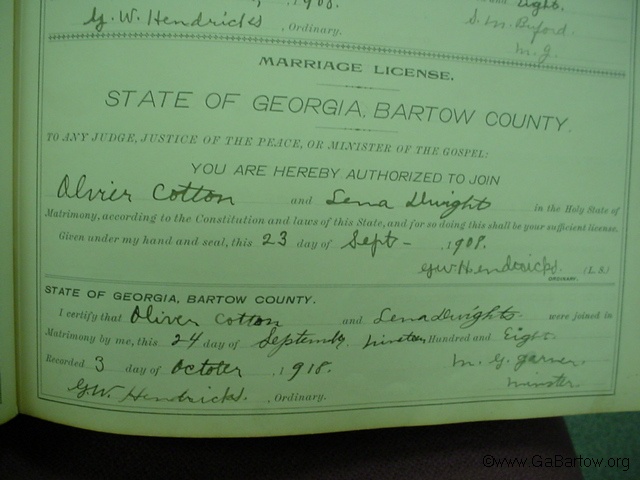 1908.
G. W. Hendricks, Ordinary.
Eight.
S. M. Buford.
M. J.
MARRIAGE LICENSE.
STATE OF GEORGIA, BARTOW COUNTY.
TO ANY JUDGE, JUSTICE OF THE PEACE, OR MINISTER OF THE GOSPEL:
YOU ARE HEREBY AUTHORIZED TO JOIN
Oliver Cotton and Lena Dwight in the Holy State of
Matrimony, according to the Constitution and laws of this State, and for so doing this shall be your sufficient license.
Given under my hand and seal, this 23 day of Sept - , 1908.
G.W. Hendricks. (L. S.)
ORDINARY.
STATE OF GEORGIA, BARTOW COUNTY.
I certify that Oliver Cotton and Lena Dwights were joined in
Matrimony by me, this 24 day of September, nineteen Hundred and Eight.
Recorded 3 day of October , 1918. M. G. Garner.
G.W. Hendricks. , Ordinary. minster
©www.GaBartow.org